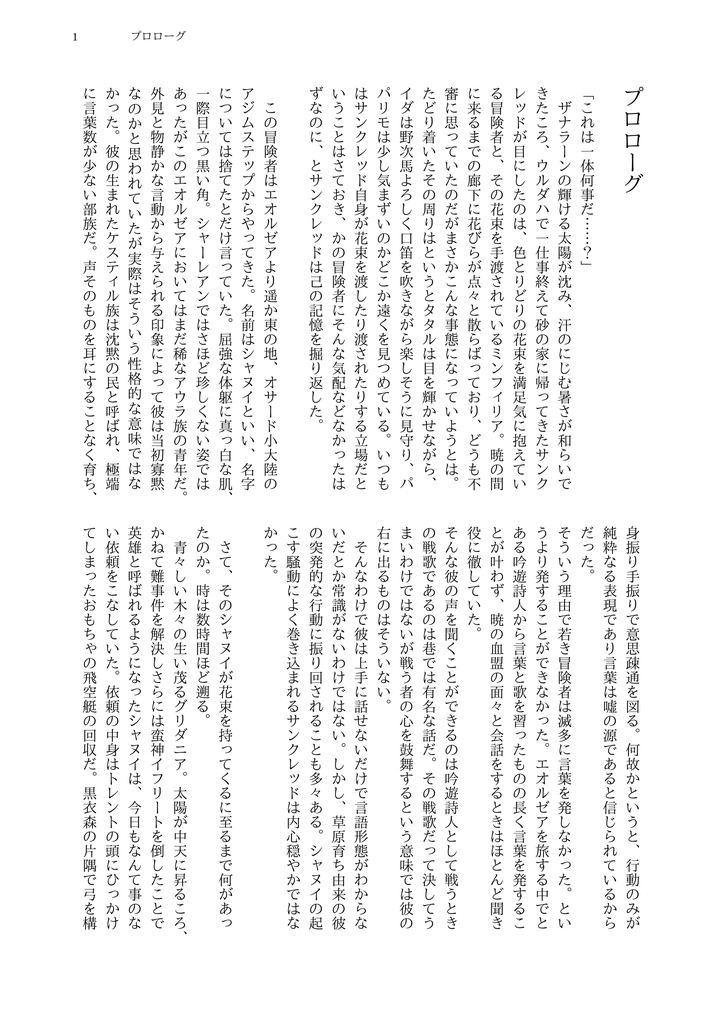 1
プロローグ
プロローグ
「これは一体何事だ……？」
ザナラーンの輝ける太陽が沈み、汗のにじむ暑さが和らいで
きたころ、ウルダハで一仕事終えて砂の家に帰ってきたサンク
レッドが目にしたのは、色とりどりの花束を満足気に抱えてい
る冒険者と、その花束を手渡されているミンフィリア。暁の間
に来るまでの廊下に花びらが点々と散らばっており、どうも不
審に思っていたのだがまさかこんな事態になっていようとは。
たどり着いたその周りはというとタタルは目を輝かせながら、
イダは野次馬よろしく口笛を吹きながら楽しそうに見守り、パ
パリモは少し気まずいのかどこか遠くを見つめている。いつも
はサンクレッド自身が花束を渡したり渡されたりする立場だと
いうことはさておき、かの冒険者にそんな気配などなかったは
ずなのに、とサンクレッドは己の記憶を掘り返した。
この冒険者はエオルゼアより遥か東の地、オサード小大陸の
アジムステップからやってきた。名前はシャヌイといい、名字
については捨てたとだけ言っていた。屈強な体躯に真っ白な肌、
一際目立つ黒い角。シャーレアンではさほど珍しくない姿では
あったがこのエオルゼアにおいてはまだ稀なアウラ族の青年だ。
外見と物静かな言動から与えられる印象によって彼は当初寡黙
なのかと思われていたが実際はそういう性格的な意味ではな
かった。彼の生まれたケスティル族は沈黙の民と呼ばれ、極端
に言葉数が少ない部族だ。声そのものを耳にすることなく育ち、
身振り手振りで意思疎通を図る。何故かというと、行動のみが
純粋なる表現であり言葉は嘘の源であると信じられているから
だった。
そういう理由で若き冒険者は滅多に言葉を発しなかった。とい
うより発することができなかった。エオルゼアを旅する中でと
ある吟遊詩人から言葉と歌を習ったものの長く言葉を発するこ
とが叶わず、暁の血盟の面々と会話をするときはほとんど聞き
役に徹していた。
そんな彼の声を聞くことができるのは吟遊詩人として戦うとき
の戦歌であるのは巷では有名な話だ。その戦歌だって決してう
まいわけではないが戦う者の心を鼓舞するという意味では彼の
右に出るものはそういない。
そんなわけで彼は上手に話せないだけで言語形態がわからな
いだとか常識がないわけではない。しかし、草原育ち由来の彼
の突発的な行動に振り回されることも多々ある。シャヌイの起
こす騒動によく巻き込まれるサンクレッドは内心穏やかではな
かった。
さて、そのシャヌイが花束を持ってくるに至るまで何があっ
たのか。時は数時間ほど遡る。
青々しい木々の生い茂るグリダニア。太陽が中天に昇るころ、
かねて難事件を解決しさらには蛮神イフリートを倒したことで
英雄と呼ばれるようになったシャヌイは、今日もなんて事のな
い依頼をこなしていた。依頼の中身はトレントの頭にひっかけ
てしまったおもちゃの飛空艇の回収だ。黒衣森の片隅で弓を構